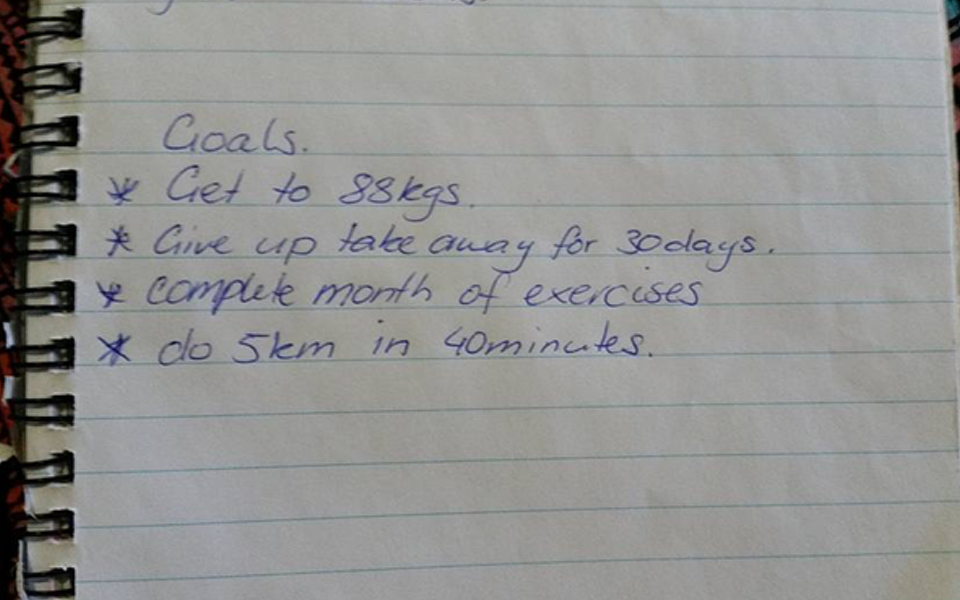 Goals.
* Get to 88kgs.
* Give up take away for 30days.
* complete month of exercises
* do 5km in 40minutes.